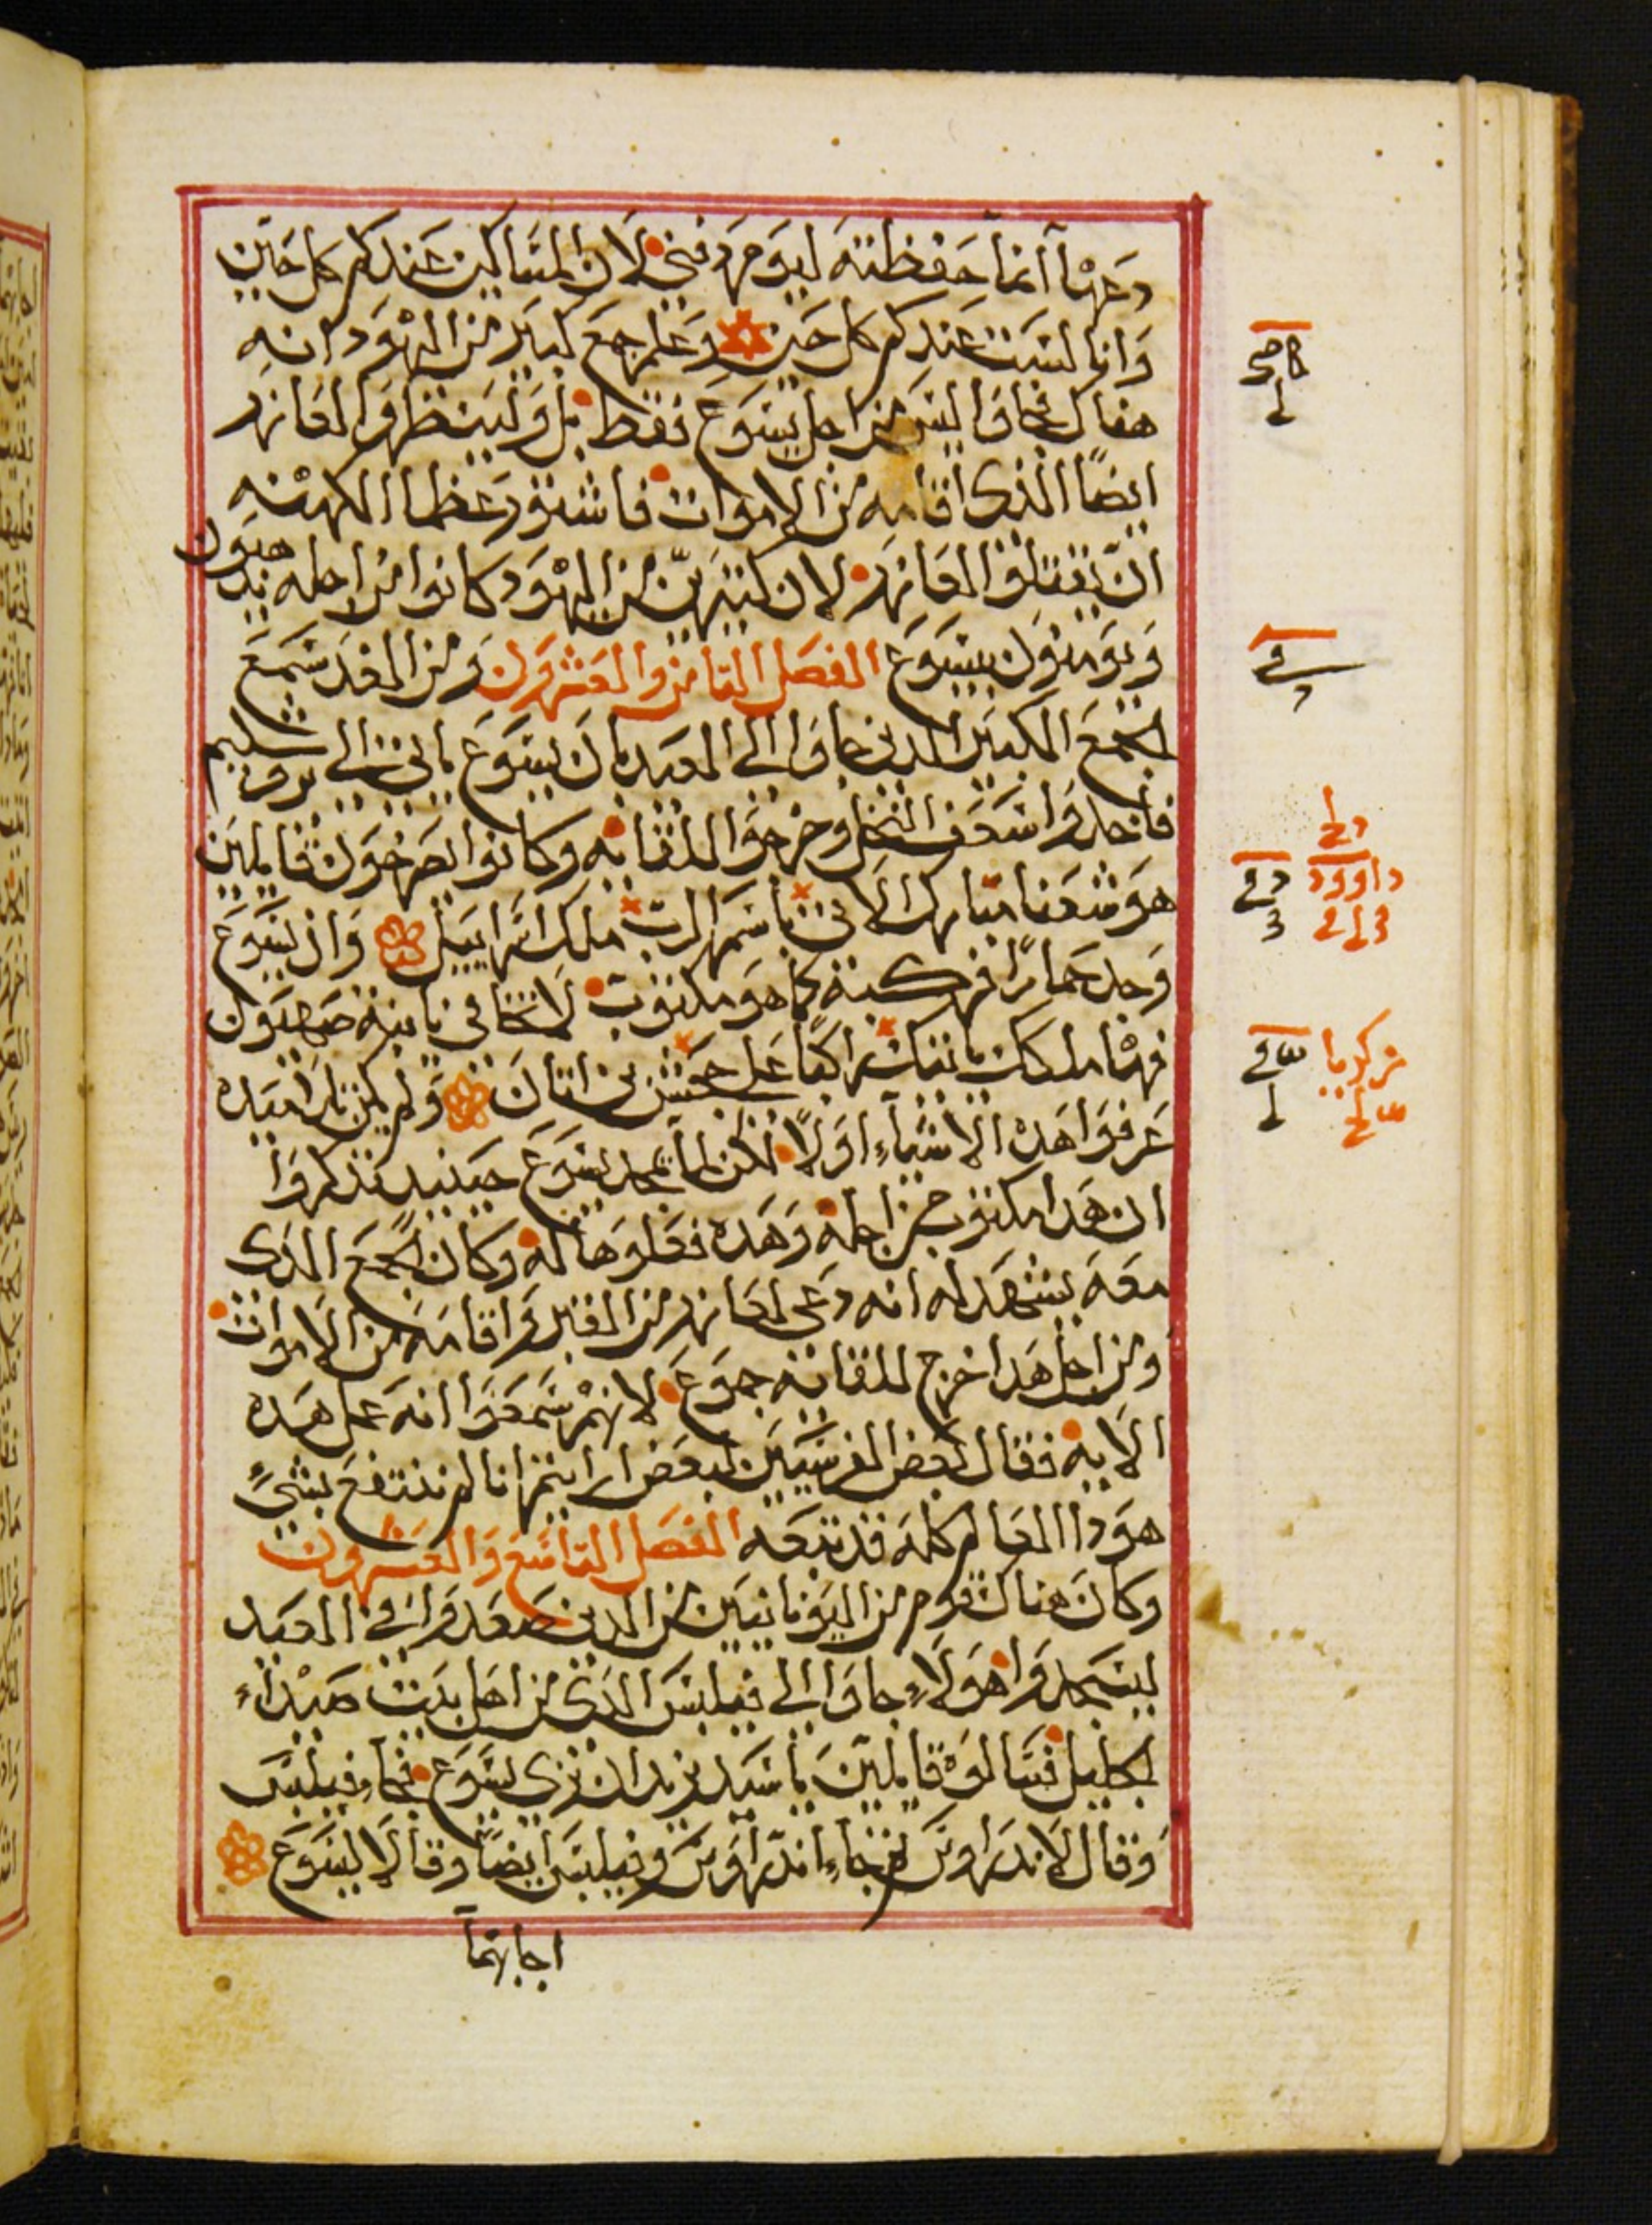 دعها انما حفظته ليوم دفني لان المساكين عندكم كل حين
وانا لست عندكم كل حين وعلم جمع كبير من اليهود انه
هناك فجاوا ليس من اجل يسوع فقط بل ولينظروا لعازر
ايضاً الذى اقامه من الاموات فاشتور عظما الكهنه
ان يقتلوا لعازر لان كثيرين من اليهود كانوا من اجله يذهبون
ويومنون بيسوع الفصل التامن والعشرون ومن الغد سمع
الجمع الكبير الدين جاوا الى العيد بان يسوع ياتى الى يروشليم
فاخدوا سعف النخل وخرجوا للقايه وكانوا يصرخون قايلين
هوشعنا مبارك الاتى باسم الرب ملك اسراييل وان يسوع
وجد حمارًا فركبه كما هو مكتوب لا تخافى يا ابنة صهيون
فهدا ملكك ياتيك راكبًا على جحش بن اتان ولم يكن تلاميده
عرفوا هده الاشياء اولًا لكن لما تمجد يسوع حينيد تدكروا
ان هدا مكتوب من اجله وهده فعلوها له وكان الجمع الدى
معه يشهد له انه دعى لعازر من القبر واقامه من الاموات
ومن اجل هدا خرج للقايه جموع لانهم سمعوا انه عمل هده
الايه فقال بعض الفريسيين لبعض ارايتم انا لم ننتفع بشئ
هودا العالم كله قد تبعه الفصل التاسع والعشرون
وكان هناك قوم من اليونانيين من الدين صعدوا فى العيد
ليسجدوا هولاء جاوا الى فيلبس الدى من اهل بيت صيداء
الجليل فسالوه قايلين يا سيد نريد ان نرى يسوع فجاء فيلبس
وقال لاندراوس ثم جاء اندراوس وفيلبس ايضاً وقالا ليسوع
اجابهما
داوود
زكريا